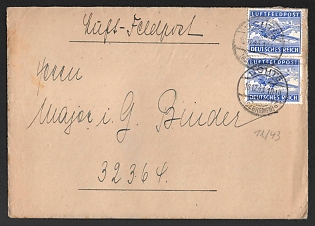 Luft-Feldpost
LUFTFELDPOST
DEUTSCHES REICH
LUFTFELDPOST
DEUTSCHES REICH
Herrn
Major i. G. Binder
11/43
32364.